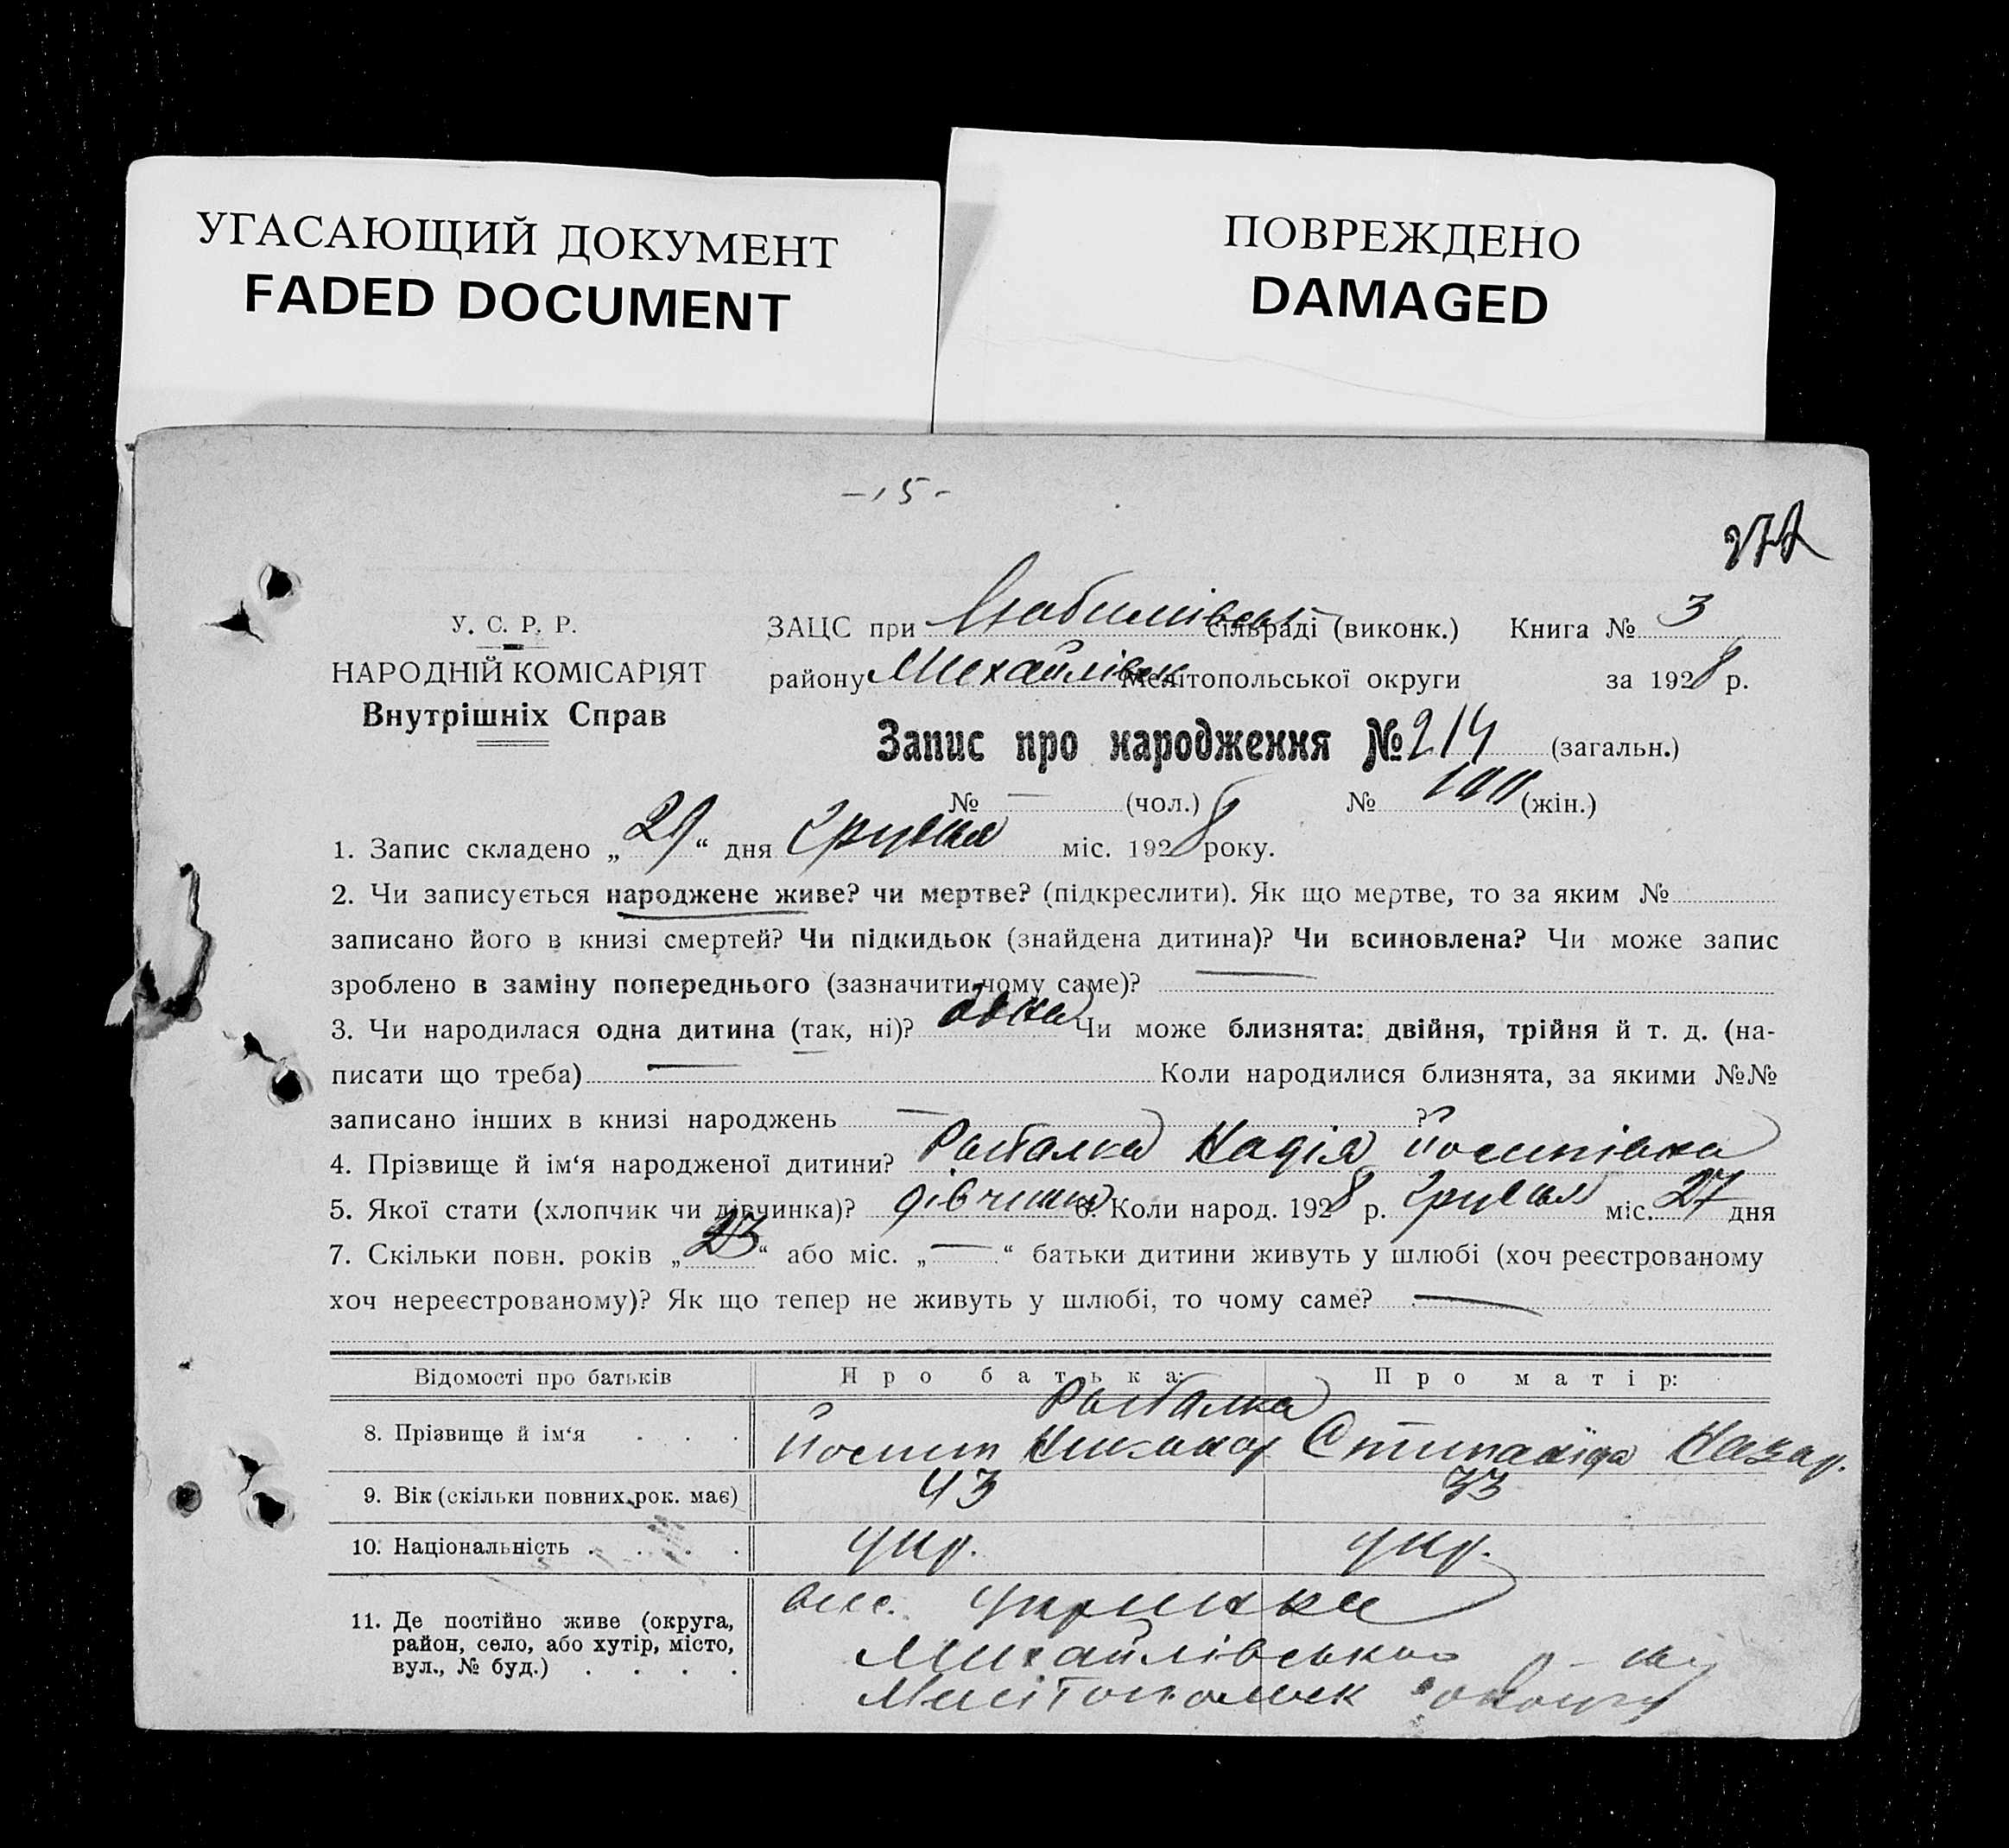 УГАСАЮЩИЙ ДОКУМЕНТ
FADED DOCUMENT
ПОВРЕЖДЕНО
DAMAGED
- 15 -
У. С. Р. Р.
НАРОДНІЙ КОМІСАРІЯТ
Внутрішніх Справ
ЗАЦС при сільраді (виконк.) Книга № 3
району Михайлівск Мелітопольської округи за 1928 р.
Запис про народження № 214 (загальн.)
№ — (чол.) № 100 (жін.)
1. Запис складено „29“ дня грудня міс. 1928 року.
2. Чи записується народжене живе? чи мертве? (підкреслити). Як що мертве, то за яким №
записано його в книзі смертей? Чи підкидьок (знайдена дитина)? Чи всиновлена? Чи може запис
зроблено в заміну попереднього (зазначити чому саме)? —
3. Чи народилася одна дитина (так, ні)? одна Чи може близнята: двійня, трійня й т. д. (на-
писати що треба) — Коли народилися близнята, за якими №№
записано інших в книзі народжень — ?
4. Прізвище й ім‘я народженої дитини? Рыбалка Надія Йосипівна
5. Якої стати (хлопчик чи дівчинка)? дівчинка 6. Коли народ. 1928 р. грудня міс. 27 дня
7. Скільки повн. років „23“ або міс. „—“ батьки дитини живуть у шлюбі (хоч реєстрованому
хоч нереєстрованому)? Як що тепер не живуть у шлюбі, то чому саме? —
Відомості про батьків Про батька: Про матір:
Рыбалка
8. Прізвище й ім‘я . . . Йосип Никанор Степанида Назар.
9. Вік (скільки повних рок. має) 43
10. Національність . . . . укр. укр.
11. Де постійно живе (округа,
район, село, або хутір, місто,
вул., № буд.) . . . .
Михайлівського
Мелітопольск округи